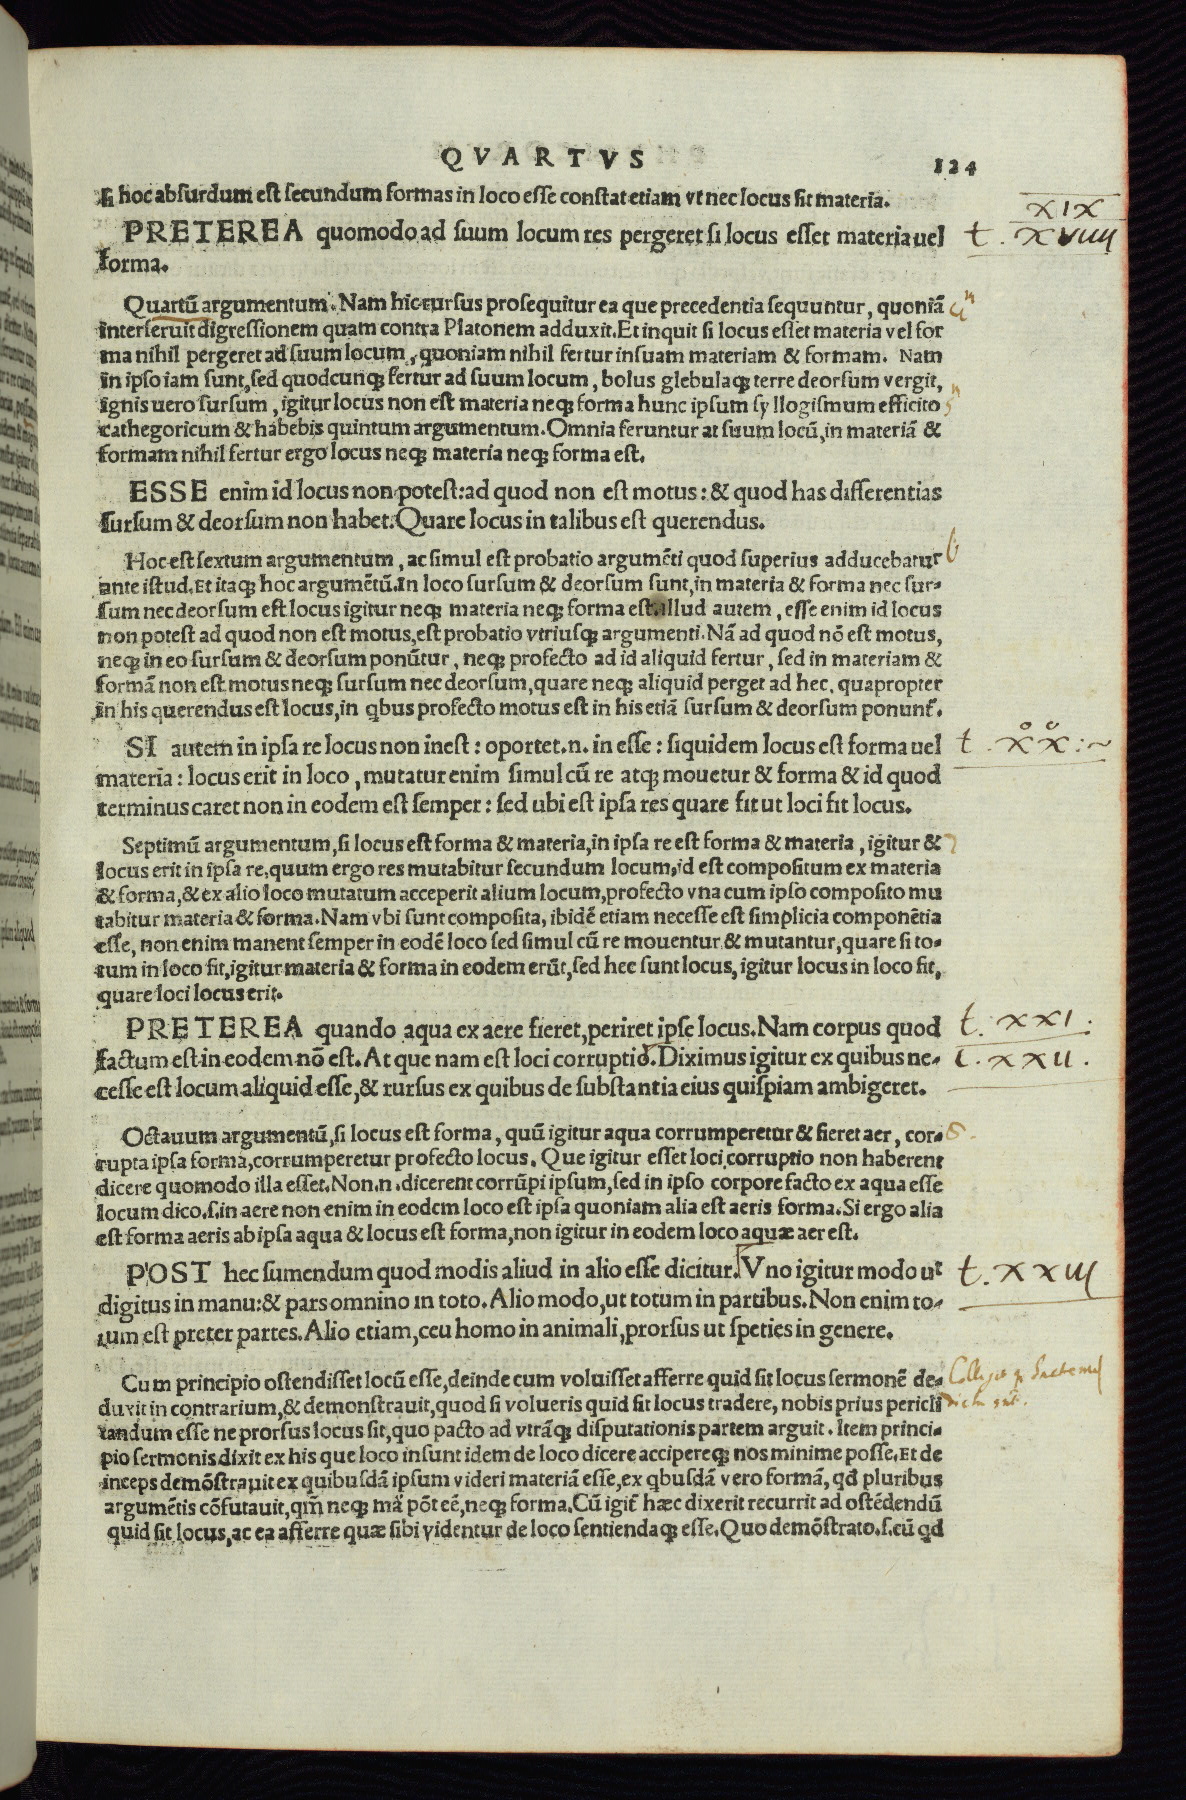 QVARTVS 124
si hoc absurdum est secundum formas in loco esse constat etiam vt nec locus sit materia.
XIX
PRETEREA quomodo ad suum locum res pergeret si locus esset materia uel
t. XVIIII
forma.
Quartū argumentum. Nam hic rursus prosequitur ea que precedentia sequuntur, quoniā
4ᵐ
interseruit digressionem quam contra Platonem adduxit. Et inquit si locus esset materia vel for
ma nihil pergeret ad suum locum, quoniam nihil fertur in suam materiam & formam. Nam
in ipso iam sunt, sed quodcunqꝫ fertur ad suum locum, bolus glebulaqꝫ terre deorsum vergit,
ignis uero sursum, igitur locus non est materia neqꝫ forma hunc ipsum syllogismum efficito
5ᵐ
cathegoricum & habebis quintum argumentum. Omnia feruntur at suum locū, in materiā &
formam nihil fertur ergo locus neqꝫ materia neqꝫ forma est.
ESSE enim id locus non potest: ad quod non est motus: & quod has differentias
sursum & deorsum non habet. Quare locus in talibus est querendus.
Hoc est sextum argumentum, ac simul est probatio argumēti quod superius adducebatur
6
ante istud. Et itaqꝫ hoc argumētū. In loco sursum & deorsum sunt, in materia & forma nec sur-
sum nec deorsum est locus igitur neqꝫ materia neqꝫ forma est. illud autem, esse enim id locus
non potest ad quod non est motus, est probatio vtriusqꝫ argumenti. Nā ad quod nō est motus,
neqꝫ in eo sursum & deorsum ponūtur, neqꝫ profecto ad id aliquid fertur, sed in materiam &
formā non est motus neqꝫ sursum nec deorsum, quare neqꝫ aliquid perget ad hec, quapropter
in his querendus est locus, in ꝗbus profecto motus est in his etiā sursum & deorsum ponunt̄.
SI autem in ipsa re locus non inest: oportet .n. in esse: siquidem locus est forma uel
t. XX:~
materia: locus erit in loco, mutatur enim simul cū re atqꝫ mouetur & forma & id quod
terminus caret non in eodem est semper: sed ubi est ipsa res quare fit ut loci fit locus.
Septimū argumentum, si locus est forma & materia, in ipsa re est forma & materia, igitur &
7
locus erit in ipsa re, quum ergo res mutabitur secundum locum, id est compositum ex materia
& forma, & ex alio loco mutatum acceperit alium locum, profecto vna cum ipso composito mu
tabitur materia & forma. Nam vbi sunt composita, ibidē etiam necesse est simplicia componētia
esse, non enim manent semper in eodē loco sed simul cū re mouentur & mutantur, quare si to-
tum in loco fit, igitur materia & forma in eodem erūt, sed hec sunt locus, igitur locus in loco fit,
quare loci locus erit.
PRETEREA quando aqua ex aere fieret, periret ipse locus. Nam corpus quod
t. XXI.
factum est in eodem nō est. At que nam est loci corruptio. Diximus igitur ex quibus ne-
t. XXII.
cesse est locum aliquid esse, & rursus ex quibus de substantia eius quispiam ambigeret.
Octauum argumentū, si locus est forma, quū igitur aqua corrumperetur & fieret aer, cor-
8.
rupta ipsa forma, corrumperetur profecto locus. Que igitur esset loci corruptio non haberent
dicere quomodo illa esset. Non .n. dicerent corrūpi ipsum, sed in ipso corpore facto ex aqua esse
locum dico .s. in aere non enim in eodem loco est ipsa quoniam alia est aeris forma. Si ergo alia
est forma aeris ab ipsa aqua & locus est forma, non igitur in eodem loco aquæ aer est.
POST hec sumendum quod modis aliud in alio esse dicitur. Vno igitur modo ut
t. XXIII
digitus in manu: & pars omnino in toto. Alio modo, ut totum in partibus. Non enim to-
tum est preter partes. Alio etiam, ceu homo in animali, prorsus ut speties in genere.
Cum principio ostendisset locū esse, deinde cum voluisset afferre quid sit locus sermonē de-
duxit in contrarium, & demonstrauit, quod si volueris quid sit locus tradere, nobis prius pericli
tandum esse ne prorsus locus sit, quo pacto ad vtrāqꝫ disputationis partem arguit. Item princi-
pio sermonis dixit ex his que loco insunt idem de loco dicere accipereqꝫ nos minime posse. Et de
inceps demōstrauit ex quibusdā ipsum videri materiā esse, ex ꝗbusdā vero formā, qđ pluribus
argumētis cōfutauit, qm̄ neqꝫ mā pōt eē, neqꝫ forma. Cū igit̄ hæc dixerit recurrit ad ostēdendū
quid sit locus, ac ea afferre quæ sibi videntur de loco sentiendaqꝫ esse. Quo demōstrato .s. cū qđ